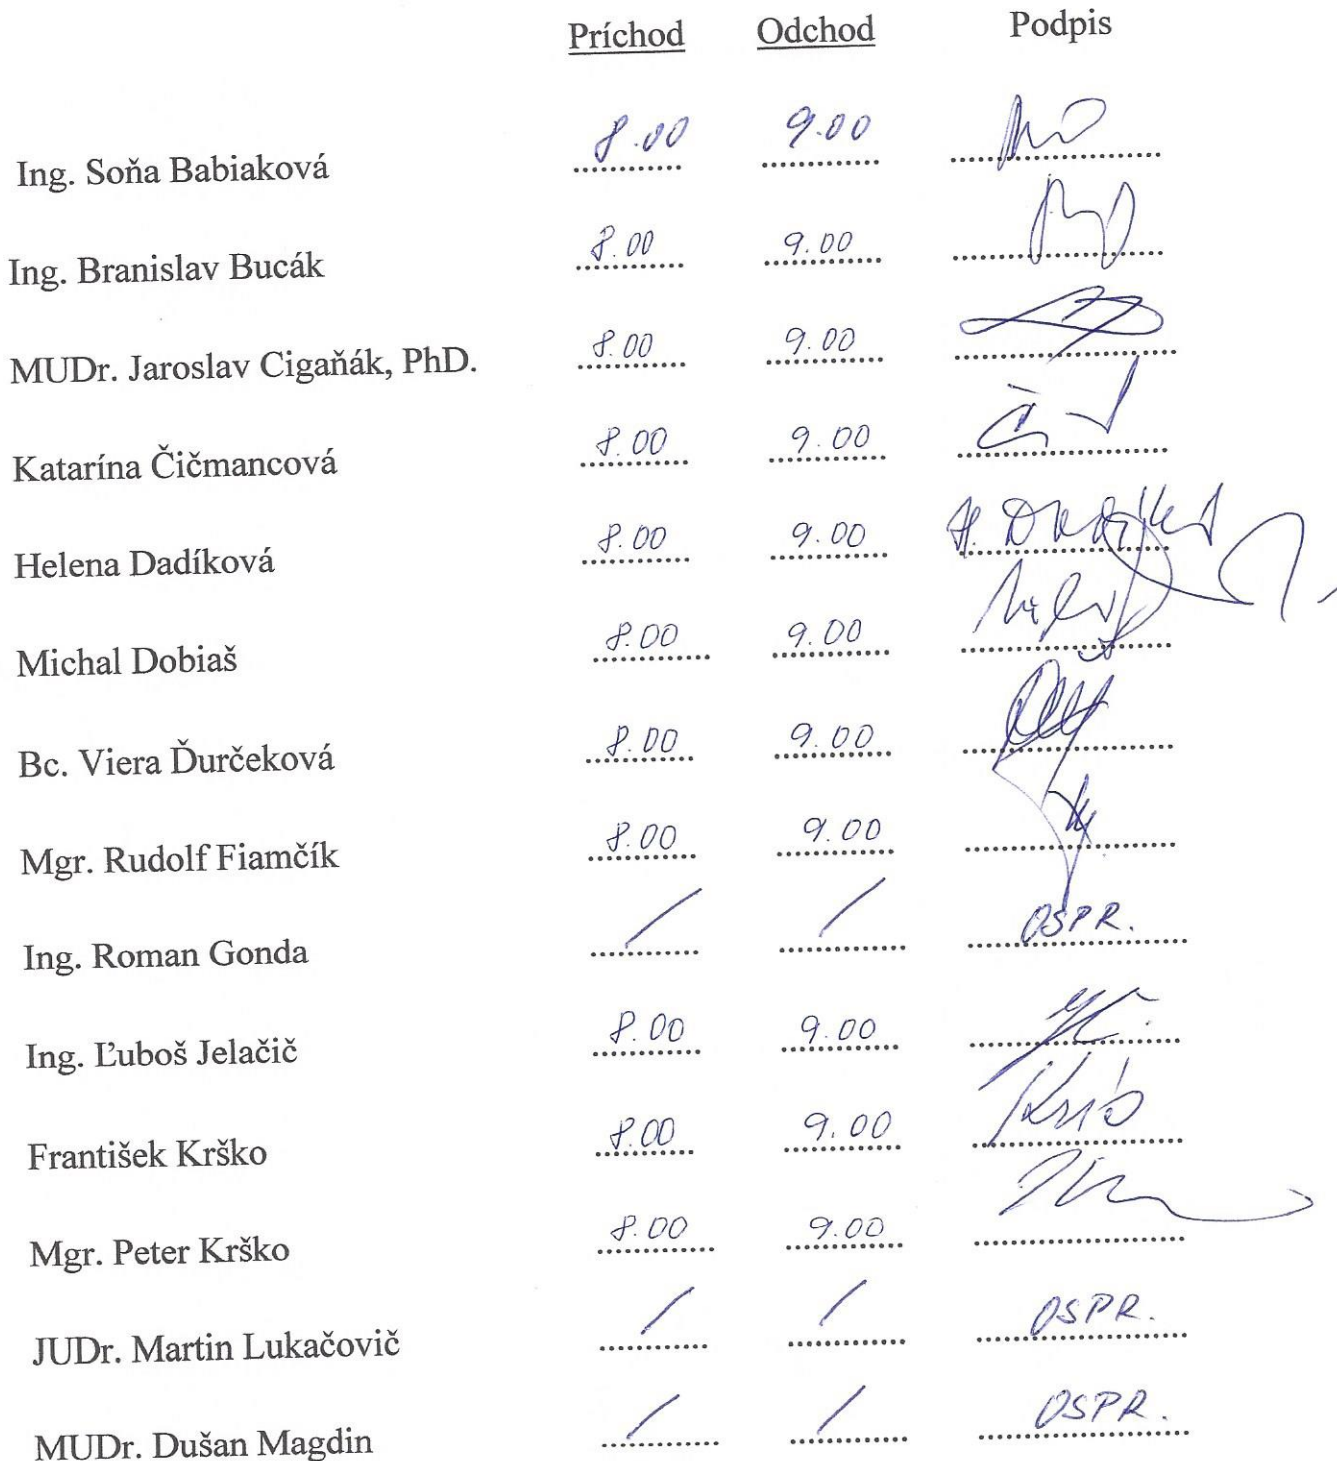 Príchod Odchod Podpis
Ing. Soňa Babiaková 8.00 9.00
Ing. Branislav Bucák 8.00 9.00
MUDr. Jaroslav Cigaňák, PhD. 8.00 9.00
Katarína Čičmancová 8.00 9.00
Helena Dadíková 8.00 9.00 H. Dadíková
Michal Dobiaš 8.00 9.00
Bc. Viera Ďurčeková 8.00 9.00
Mgr. Rudolf Fiamčík 8.00 9.00
Ing. Roman Gonda / / OSPR.
Ing. Ľuboš Jelačič 8.00 9.00
František Krško 8.00 9.00
Mgr. Peter Krško 8.00 9.00
JUDr. Martin Lukačovič / / OSPR.
MUDr. Dušan Magdin / / OSPR.